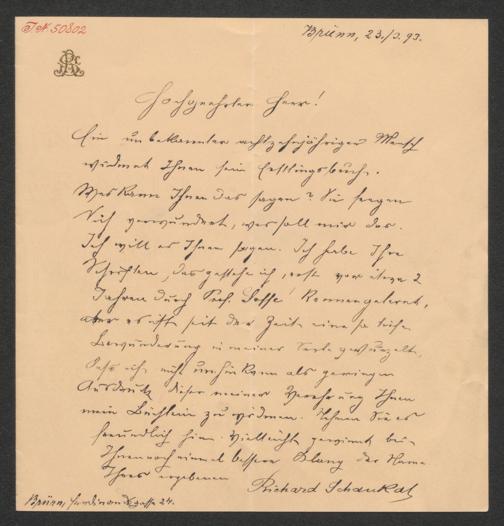 J.N. 50802
Brünn, 23./3. 93.
Hochgeehrter Herr!
Ein unbekannter achtzehnjähriger Mensch
widmet Ihnen sein Erstlingsbuch.
Was kann Ihnen das sagen? Sie fragen
Sich verwundert, was soll mir das.
Ich will es Ihnen sagen. Ich habe Ihre
Schriften, das gestehe ich, erst vor etwa 2
Jahren durch kennengelernt,
aber es ist seit der Zeit eine so tiefe
Bewunderung in meiner Seele gewurzelt,
dass ich nicht umhin kann als geringen
Ausdruck dieser meiner Verehrung Ihnen
mein Büchlein zu widmen. Nehmen Sie es
freundlich hin. Vielleicht gewinnt bei
Ihnen noch einmal bessern Klang der Name
Ihres ergebenen
Richard Schaukal
Brünn, Ferdinandsgasse 24.